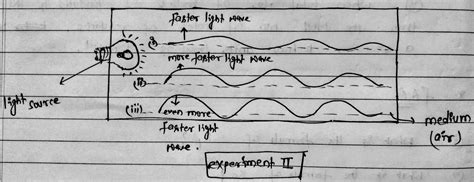 faster light wave
(i)
more faster light wave
(ii)
light source
(iii)
even more
faster light
wave.
medium
(air)
experiment II